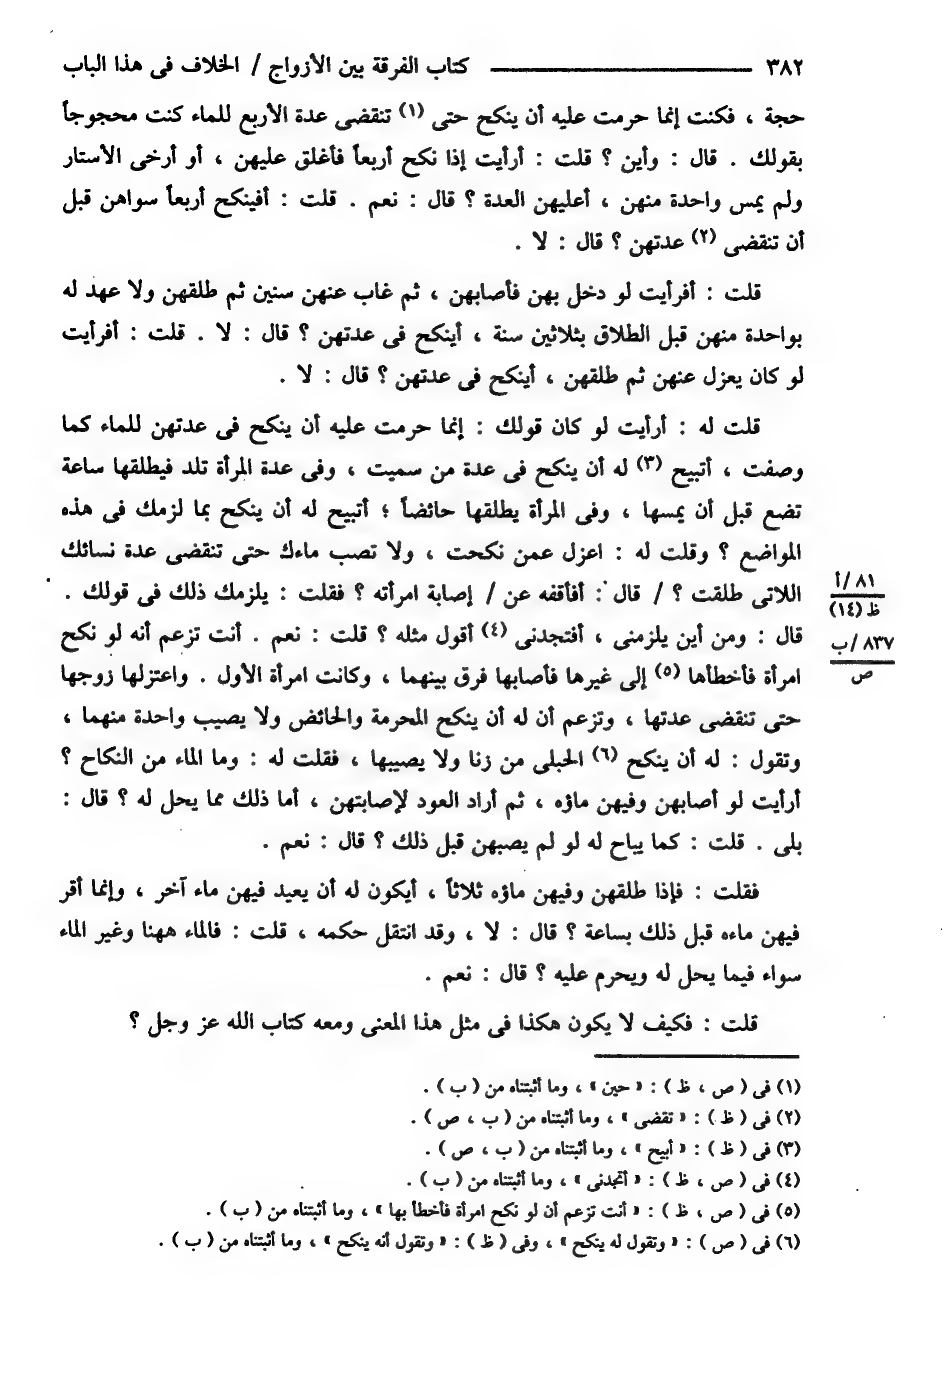 ٣٨٢ ــــــــــــــــ كتاب الفرقة بين الأزواج / الخلاف فى هذا الباب
حجة ، فكنت إنما حرمت عليه أن ينكح حتى (١) تنقضى عدة الأربع للماء كنت محجوجاً
بقولك . قال : وأين ؟ قلت : أرأيت إذا نكح أربعاً فأغلق عليهن ، أو أرخى الأستار
ولم يمس واحدة منهن ، أعليهن العدة ؟ قال : نعم . قلت : أفينكح أربعاً سواهن قبل
أن تنقضى (٢) عدتهن ؟ قال : لا .
قلت : أفرأيت لو دخل بهن فأصابهن ، ثم غاب عنهن سنين ثم طلقهن ولا عهد له
بواحدة منهن قبل الطلاق بثلاثين سنة ، أينكح فى عدتهن ؟ قال : لا . قلت : أفرأيت
لو كان يعزل عنهن ثم طلقهن ، أينكح فى عدتهن ؟ قال : لا .
قلت له : أرأيت لو كان قولك : إنما حرمت عليه أن ينكح فى عدتهن للماء كما
وصفت ، أتبيح (٣) له أن ينكح فى عدة من سميت ، وفى عدة المرأة تلد فيطلقها ساعة
تضع قبل أن يمسها ، وفى المرأة يطلقها حائضاً ؛ أتبيح له أن ينكح بما لزمك فى هذه
المواضع ؟ وقلت له : اعزل عمن نكحت ، ولا تصب ماءك حتى تنقضى عدة نسائك
اللاتى طلقت ؟ / قال : أفأقفه عن / إصابة امرأته ؟ فقلت : يلزمك ذلك فى قولك .
٨١ /أ
ظ (١٤)
قال : ومن أين يلزمنى ، أفتجدنى (٤) أقول مثله ؟ قلت : نعم . أنت تزعم أنه لو نكح
٨٣٧ /ب
ص
امرأة فأخطأها (٥) إلى غيرها فأصابها فرق بينهما ، وكانت امرأة الأول . واعتزلها زوجها
حتى تنقضى عدتها ، وتزعم أن له أن ينكح المحرمة والحائض ولا يصيب واحدة منهما ،
وتقول : له أن ينكح (٦) الحبلى من زنا ولا يصيبها ، فقلت له : وما الماء من النكاح ؟
أرأيت لو أصابهن وفيهن ماؤه ، ثم أراد العود لإصابتهن ، أما ذلك مما يحل له ؟ قال :
بلى . قلت : كما يباح له لو لم يصبهن قبل ذلك ؟ قال : نعم .
فقلت : فإذا طلقهن وفيهن ماؤه ثلاثاً ، أيكون له أن يعيد فيهن ماء آخر ، وإنما أقر
فيهن ماءه قبل ذلك بساعة ؟ قال : لا ، وقد انتقل حكمه ، قلت : فالماء ههنا وغير الماء
سواء فيما يحل له ويحرم عليه ؟ قال : نعم .
قلت : فكيف لا يكون هكذا فى مثل هذا المعنى ومعه كتاب الله عز وجل ؟
(١) فى ( ص ، ظ ) : « حين » ، وما أثبتناه من ( ب ) .
(٢) فى ( ظ ) : « تقضى » ، وما أثبتناه من ( ب ، ص ) .
(٣) فى ( ظ ) : « أبيح » ، وما أثبتناه من ( ب ، ص ) .
(٤) فى ( ص ، ظ ) : « أتجدنى » ، وما أثبتناه من ( ب ) .
(٥) فى ( ص ، ظ ) : « أنت تزعم أن لو نكح امرأة فأخطأ بها » ، وما أثبتناه من ( ب ) .
(٦) فى ( ص ) : « وتقول له ينكح » ، وفى ( ظ ) : « وتقول أنه ينكح » ، وما أثبتناه من ( ب ) .